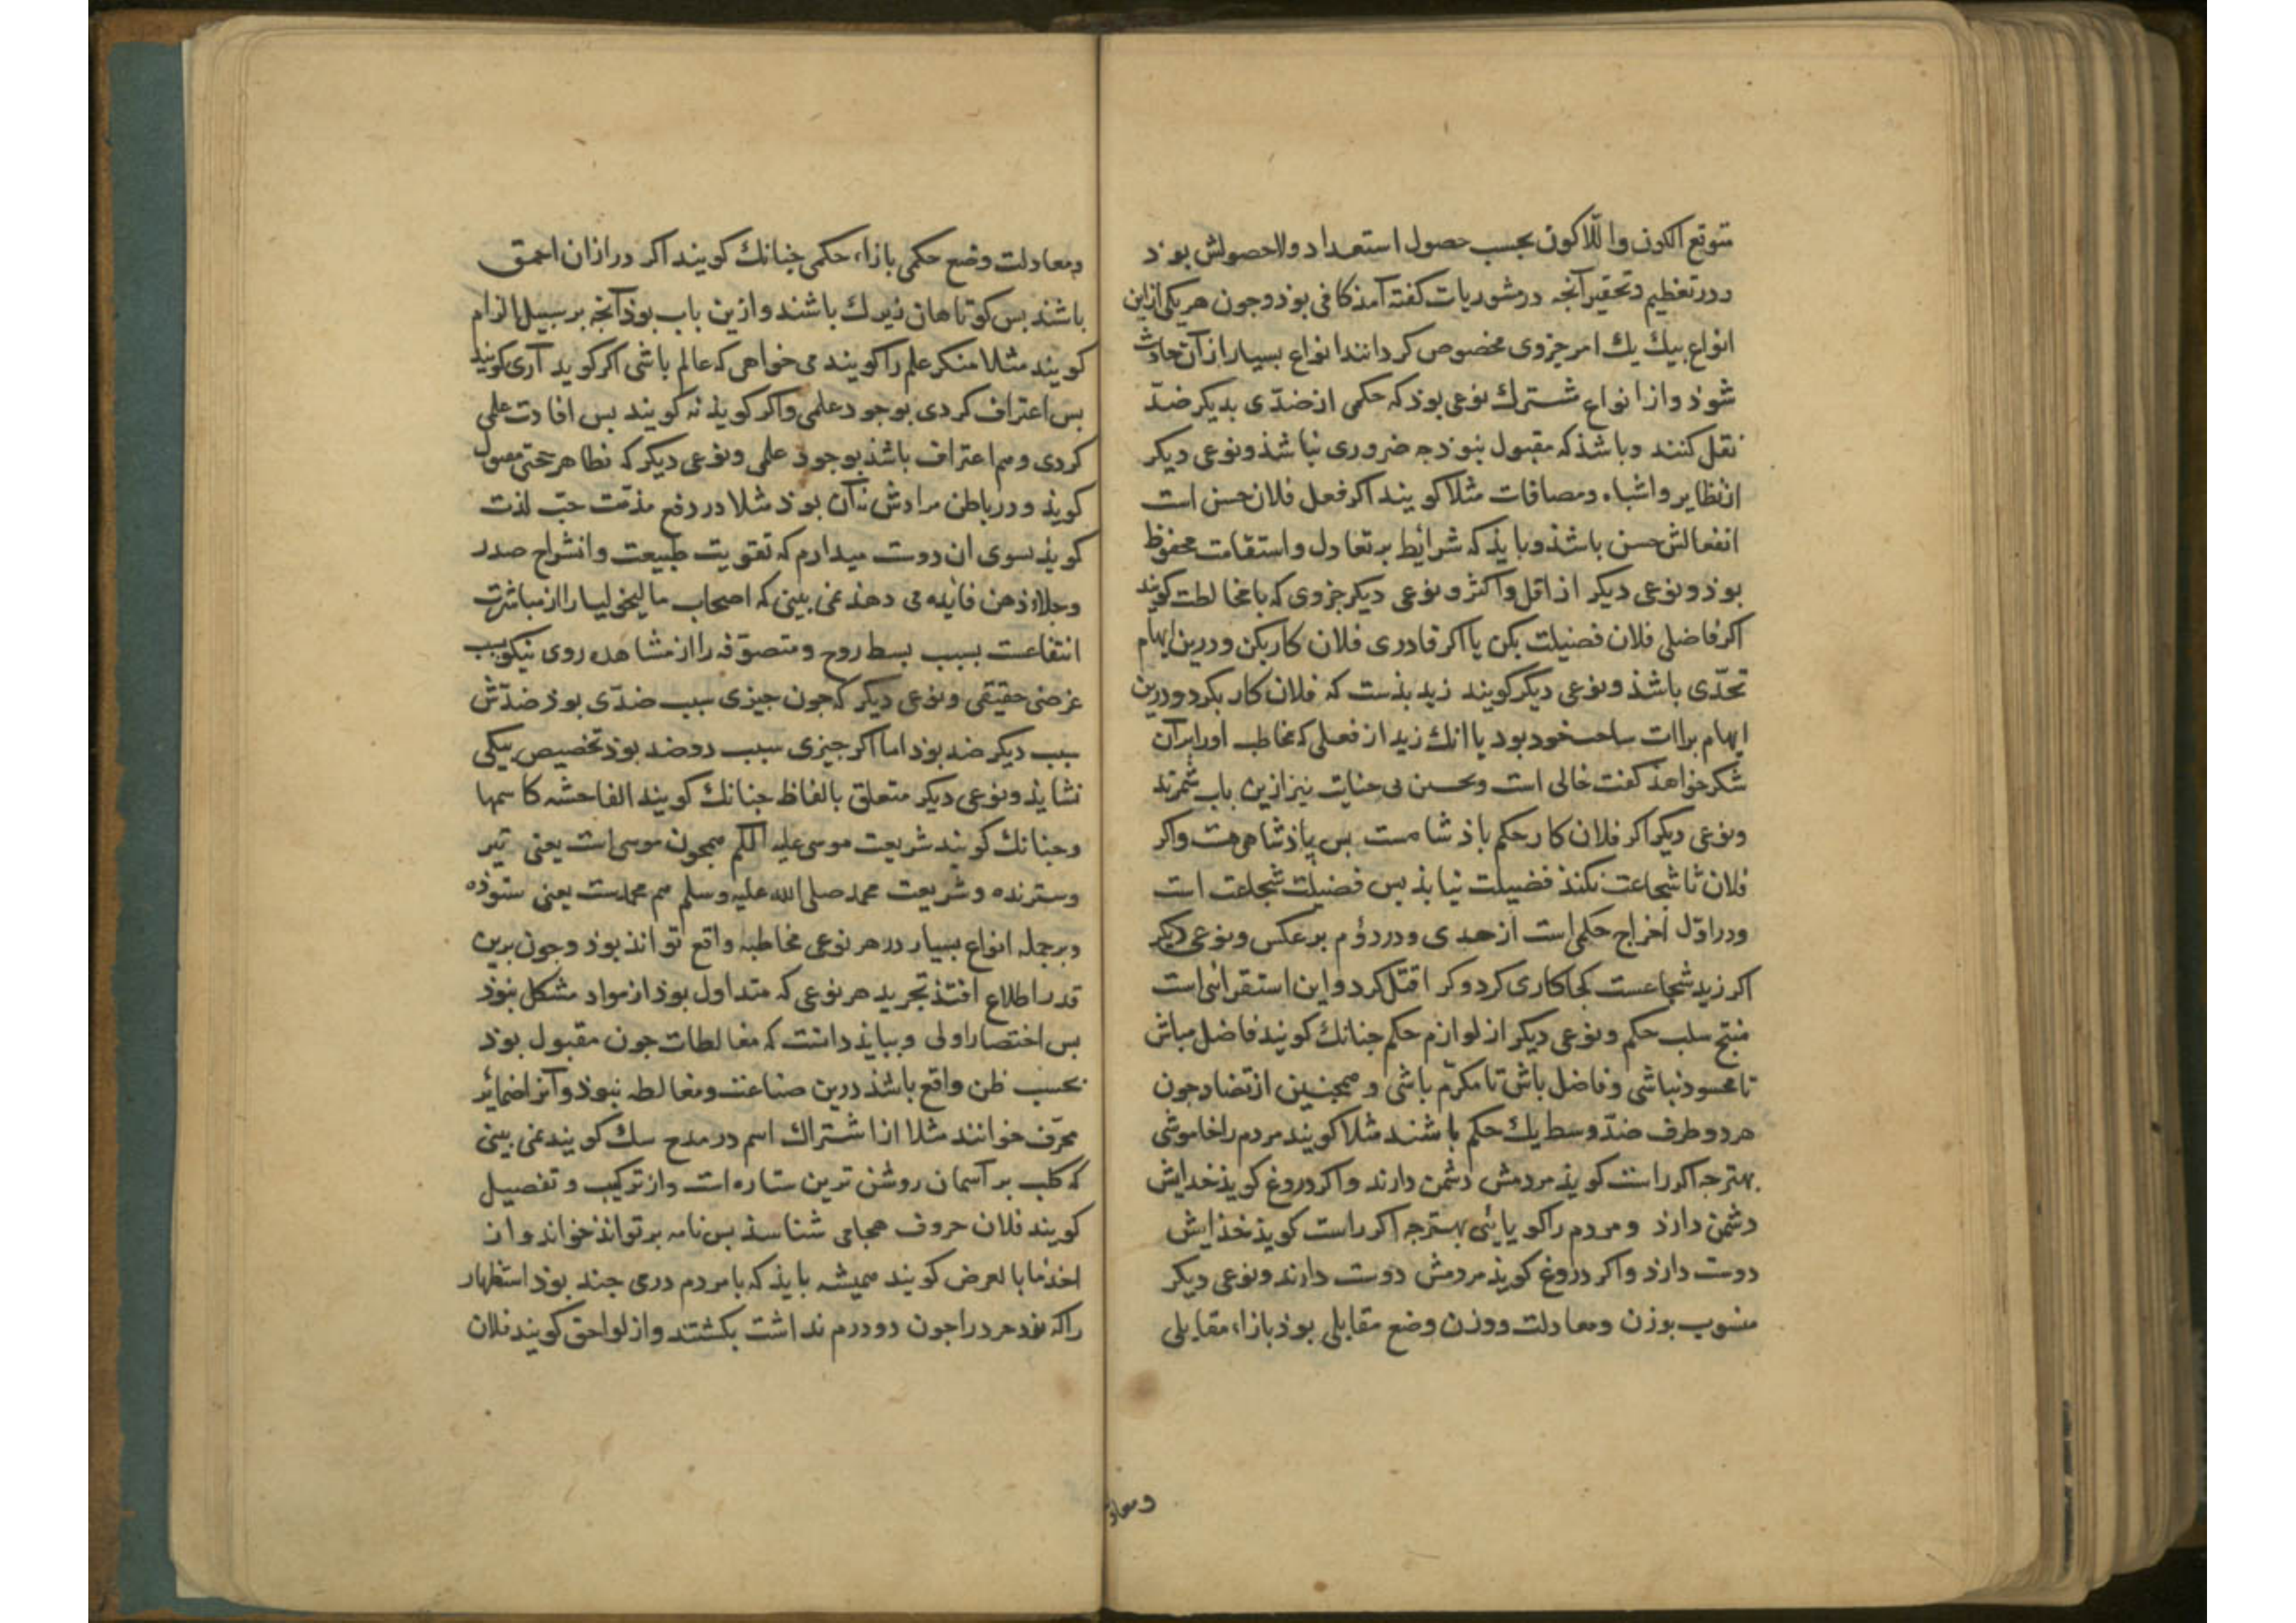 متوقع الکون واللاکون بحسب حصول استعداد ولاحصولش بوذ
ودر تعظیم وتحقیر آنجه در مشوریات کفته آمذ کافی بوذ وجون هر یکی ازین
انواع بیک یک امر جزوی مخصوص کردانند انواع بسیار از آن حادث
شوذ واز انواع مشترک نوعی بوذ که حکمی از ضدّی بدیکر ضدّ
نقل کنند وباشذ که مقبول نبوذ جه ضروری نباشذ ونوعی دیکر
از نظایر واشباه ومصافات مثلا کویند اکر فعل فلان حسن است
انفعالش حسن باشذ وبایذ که شرایط بر تعادل واستقامت محفوظ
بوذ ونوعی دیکر از اقل واکثر ونوعی دیکر جزوی که بامخالطت کویند
اکر فاضلی فلان فضیلت بکن یا اکر قادری فلان کار بکن ودرین ایهام
تحدّی باشذ ونوعی دیکر کویند زید بذست که فلان کار بکرد ودرین
ایهام براات ساحت خود بود یا انک زید از فعلی که مخاطب اورا بر آن
شکر خواهذ کفت خالی است وتحسین بی جنایت نیز ازین باب شمرند
ونوعی دیکر اکر فلان کار حکم باذشاهست بس باذشاهی هست واکر
فلان تا شجاعت نکنذ فضیلت نیابذ بس فضیلت شجاعت است
ودر اوّل اخراج حکمی است از حدی ودر دوم بر عکس ونوعی دیکر
اکر زید شجاعست کجا کاری کرد وکرا قتل کرد واین استقرائی است
منتج سلب حکم ونوعی دیکر از لوازم حکم جنانک کویند فاضل مباش
تا محسود نباشی وفاضل باش تا مکرّم باشی وهمجنین از تضاد جون
هر دو طرف ضدّ وسط یک حکم باشند مثلا کویند مردم را خاموشی
بهتر جه اکر راست کویذ مردمش دشمن دارند واکر دروغ کویذ خدایش
دشمن دارذ ومردم را کویایی بهتر جه اکر راست کویذ خذایش
دوست دارذ واکر دروغ کویذ مردمش دوست دارند ونوعی دیکر
منسوب بوزن ومعادلت ووزن وضع مقابلی بوذ بازاء مقابلی
ومعاد
ومعادلت وضع حکمی بازاء حکمی جنانک کویند اکر درازان احمق
باشند بس کوتاهان زیرک باشند وازین باب بوذ آنجه بر سبیل الزام
کویند مثلا منکر علم را کویند می خواهی که عالم باشی اکر کوید آری کویند
بس اعتراف کردی بوجود علمی واکر کویذ نه کویند بس افادت علمی
کردی وهم اعتراف باشذ بوجوذ علمی ونوعی دیکر که بظاهر حتی مقبول
کویذ ودر باطن مرادش نه آن بوذ مثلا در دفع مذمّت حبّ لذت
کویذ بسوی ان دوست میدارم که تقویت طبیعت وانشراح صدر
وجلاء ذهن فایده می دهذ نمی بینی که اصحاب مالیخولیا را از مباشرت
انتفاعست بسبب بسط روح ومتصوّفه را از مشاهده روی نیکو بسبب
غرضی حقیقی ونوعی دیکر که جون جیزی سبب ضدّی بوذ ضدّش
سبب دیکر ضد بوذ اما اکر جیزی سبب دو ضد بوذ تخصیص بیکی
نشایذ ونوعی دیکر متعلق بالفاظ جنانک کویند الفاحشه کاسمها
وجنانک کویند شریعت موسی علیه السلم همجون موسی است یعنی تیز
وسترنده وشریعت محمد صلی الله علیه وسلم هم محمدست یعنی ستوذه
وبرجمله انواع بسیار در هر نوعی مخاطبه واقع تواند بوذ وجون برین
قدر اطلاع افتذ تجرید هر نوعی که متداول بوذ از مواد مشکل نبوذ
بس اختصار اولی وببایذ دانست که مغالطات جون مقبول بوذ
بحسب ظن واقع باشذ درین صناعت ومغالطه نبوذ وآنرا ضمائر
محرّف خوانند مثلا از اشتراک اسم در مدح سک کویند نمی بینی
که کلب بر آسمان روشن ترین ستاره است واز ترکیب وتفصیل
کویند فلان حروف هجا می شناسذ بس نامه بر تواند خواند واز
اخذ ما بالعرض کویند همیشه بایذ که با مردم درمی جند بوذ استظهار
را که مرد را جون دو درم نداشت بکشتند واز لواحق کویند فلان